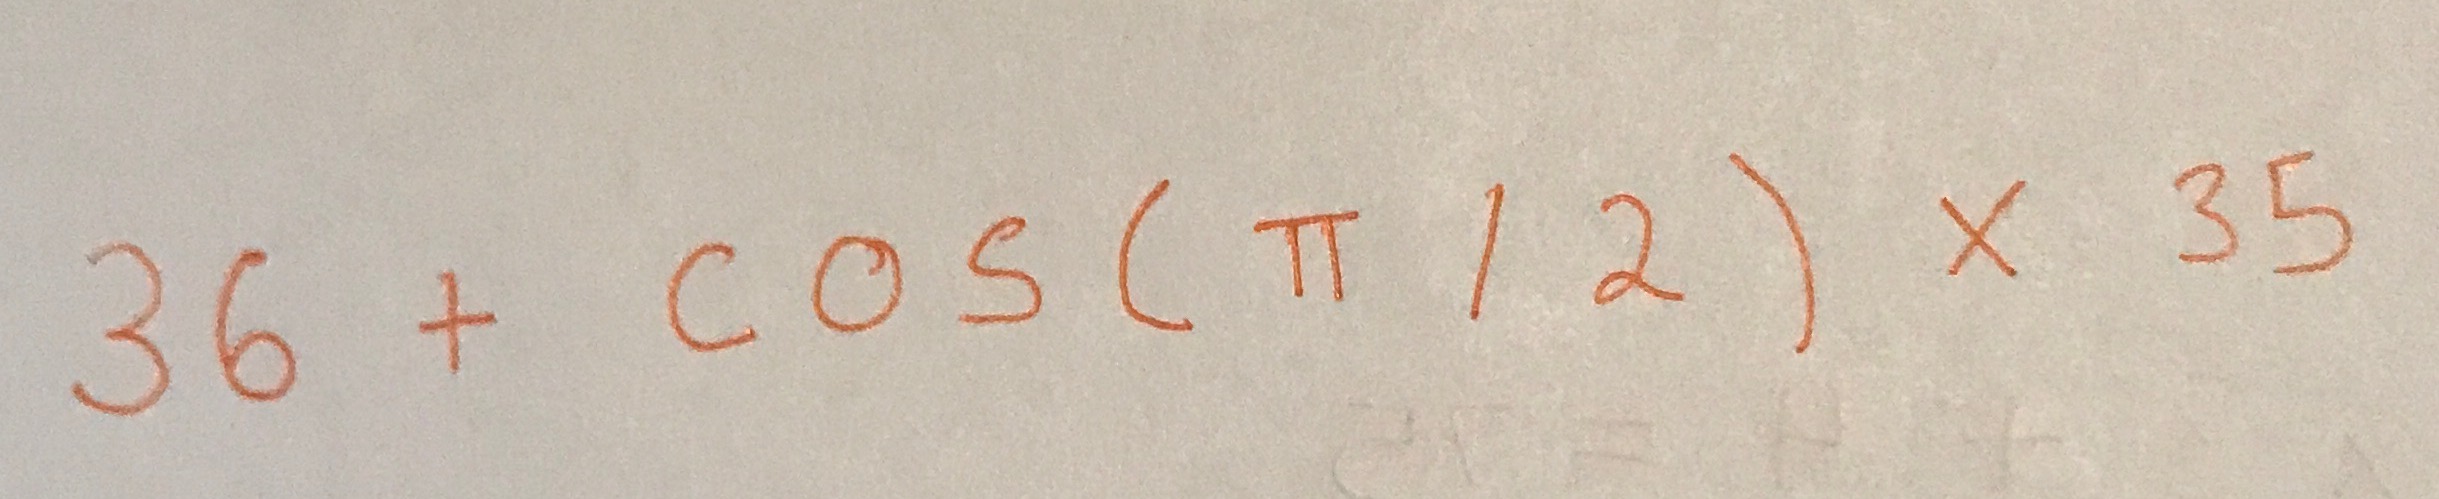 36 + cos(π/2) × 35